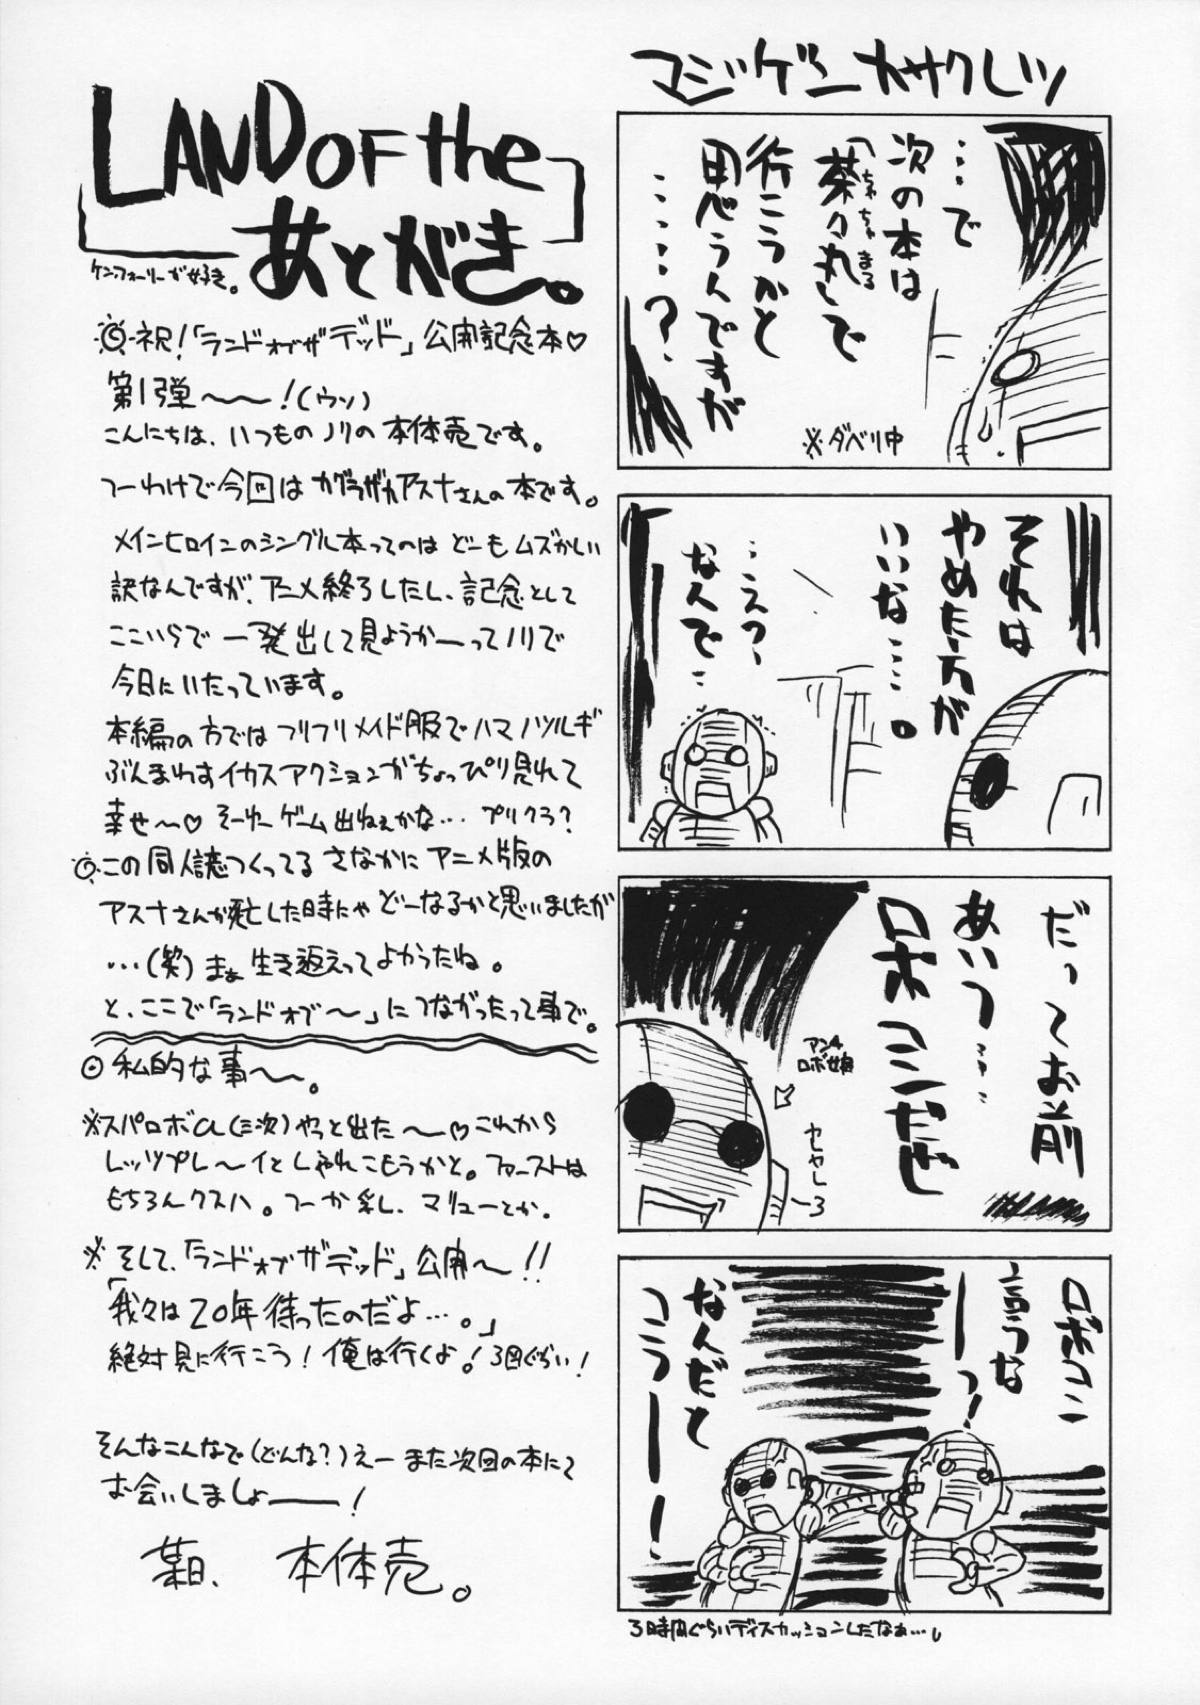 マジゲンカサクレツ
…で
次の本は
「茶々丸」で
ちゃちゃまる
行こうかと
思うんですが
……?
※ダベリ中
それは
やめた方が
いいな…。
…えっ、
なんで…
だってお前
あいつ…
ロボコンだぜ
アンチ
ロボ娘
ロボコン
言うな
ーーっ!
なんだと
コラーーー!
3時間ぐらいディスカッションしたなぁ…。
LAND OF the
あとがき。
ケン・フォーリーが好き。
◎祝!「ランドオブザデッド」公開記念本♡
第1弾〜〜!(ウソ)
こんにちは、いつものノリの本体売です。
つーわけで今回はカグラザカアスナさんの本です。
メインヒロインのシングル本ってのはどーもムズかしい
訳なんですが、アニメ終了したし、記念として
ここいらで一発出して見ようかーってノリで
今日にいたっています。
本編の方ではフリフリメイド服でハマノツルギ
ぶんまわすイカスアクションがちょっぴり見れて
幸せ〜♡そーゆーゲーム出ねぇかな…プリクラ?
◎この同人誌つくってるさなかにアニメ版の
アスナさんが死亡した時にゃどーなるかと思いましたが
…(笑)まぁ生き返えってよかったね。
と、ここで「ランドオブ〜」につながったって事で。
◎私的な事〜。
※スパロボα(三次)やっと出た〜♡これから
レッツプレ〜イとしゃれこもうかと。ファーストは
もちろんクスハ。つーか乳し、マリューとか。
※そして、「ランドオブザデッド」公開〜!!
「我々は20年待ったのだよ…。」
絶対見に行こう!俺は行くよ!3回ぐらい!
そんなこんなで(どんな?)えーまた次回の本にて
お会いしましょーー!
某日、本体売。